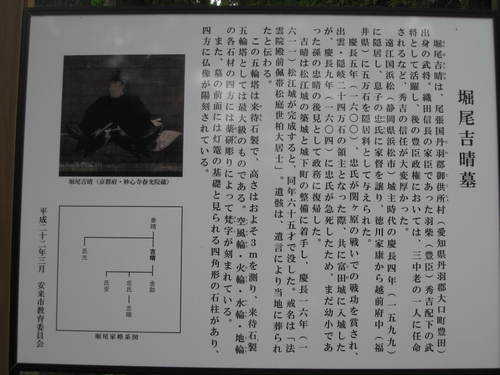 堀尾吉晴墓
堀尾吉晴は、尾張国丹羽郡御供所村（愛知県丹羽郡大口町豊田）
出身の武将。織田信長の家臣であった羽柴（豊臣）秀吉配下の武
将として活躍し、後の豊臣政権においては、三中老の一人に任命
されるなど、秀吉の信任が大変厚かった。
遠江国浜松（静岡県浜松市）城主時代の慶長四年（一五九九）
に隠居し息子の忠氏に家督を譲り、徳川家康から越前府中（福
井県）に五万石を隠居料として与えられた。
慶長五年（一六〇〇）、忠氏が関ヶ原の戦いでの戦功を賞され、
出雲・隠岐二十四万石の領主となった際、共に富田城に入城した
が、慶長九年（一六〇四）に忠氏が急死したため、まだ幼少であ
った孫の忠晴の後見として政務に復帰した。
吉晴は松江城の築城と城下町の整備に着手し、慶長一六年（一
六一一）松江城が完成すると、同年六十五才で没した。戒名は「法
雲院殿前佩帯松庭世柏大居士」。遺骸は、遺言により当地に葬られ
たと伝わる。
この五輪塔は来待石製で、高さはおよそ3mを測り、来待石製
五輪塔としては最大級のものである。空風輪・火輪・水輪・地輪
の各石材の四方には薬研彫りによって梵字が刻まれている。
また、墓の前面には灯篭の基礎と見られる四角形の石柱があり、
四方に仏像が陽刻されている。
堀尾吉晴（京都府・妙心寺春光院蔵）
泰晴
吉晴
氏光
金助
忠氏
氏安
忠晴
堀尾家略系図
平成二十二年三月　安来市教育委員会